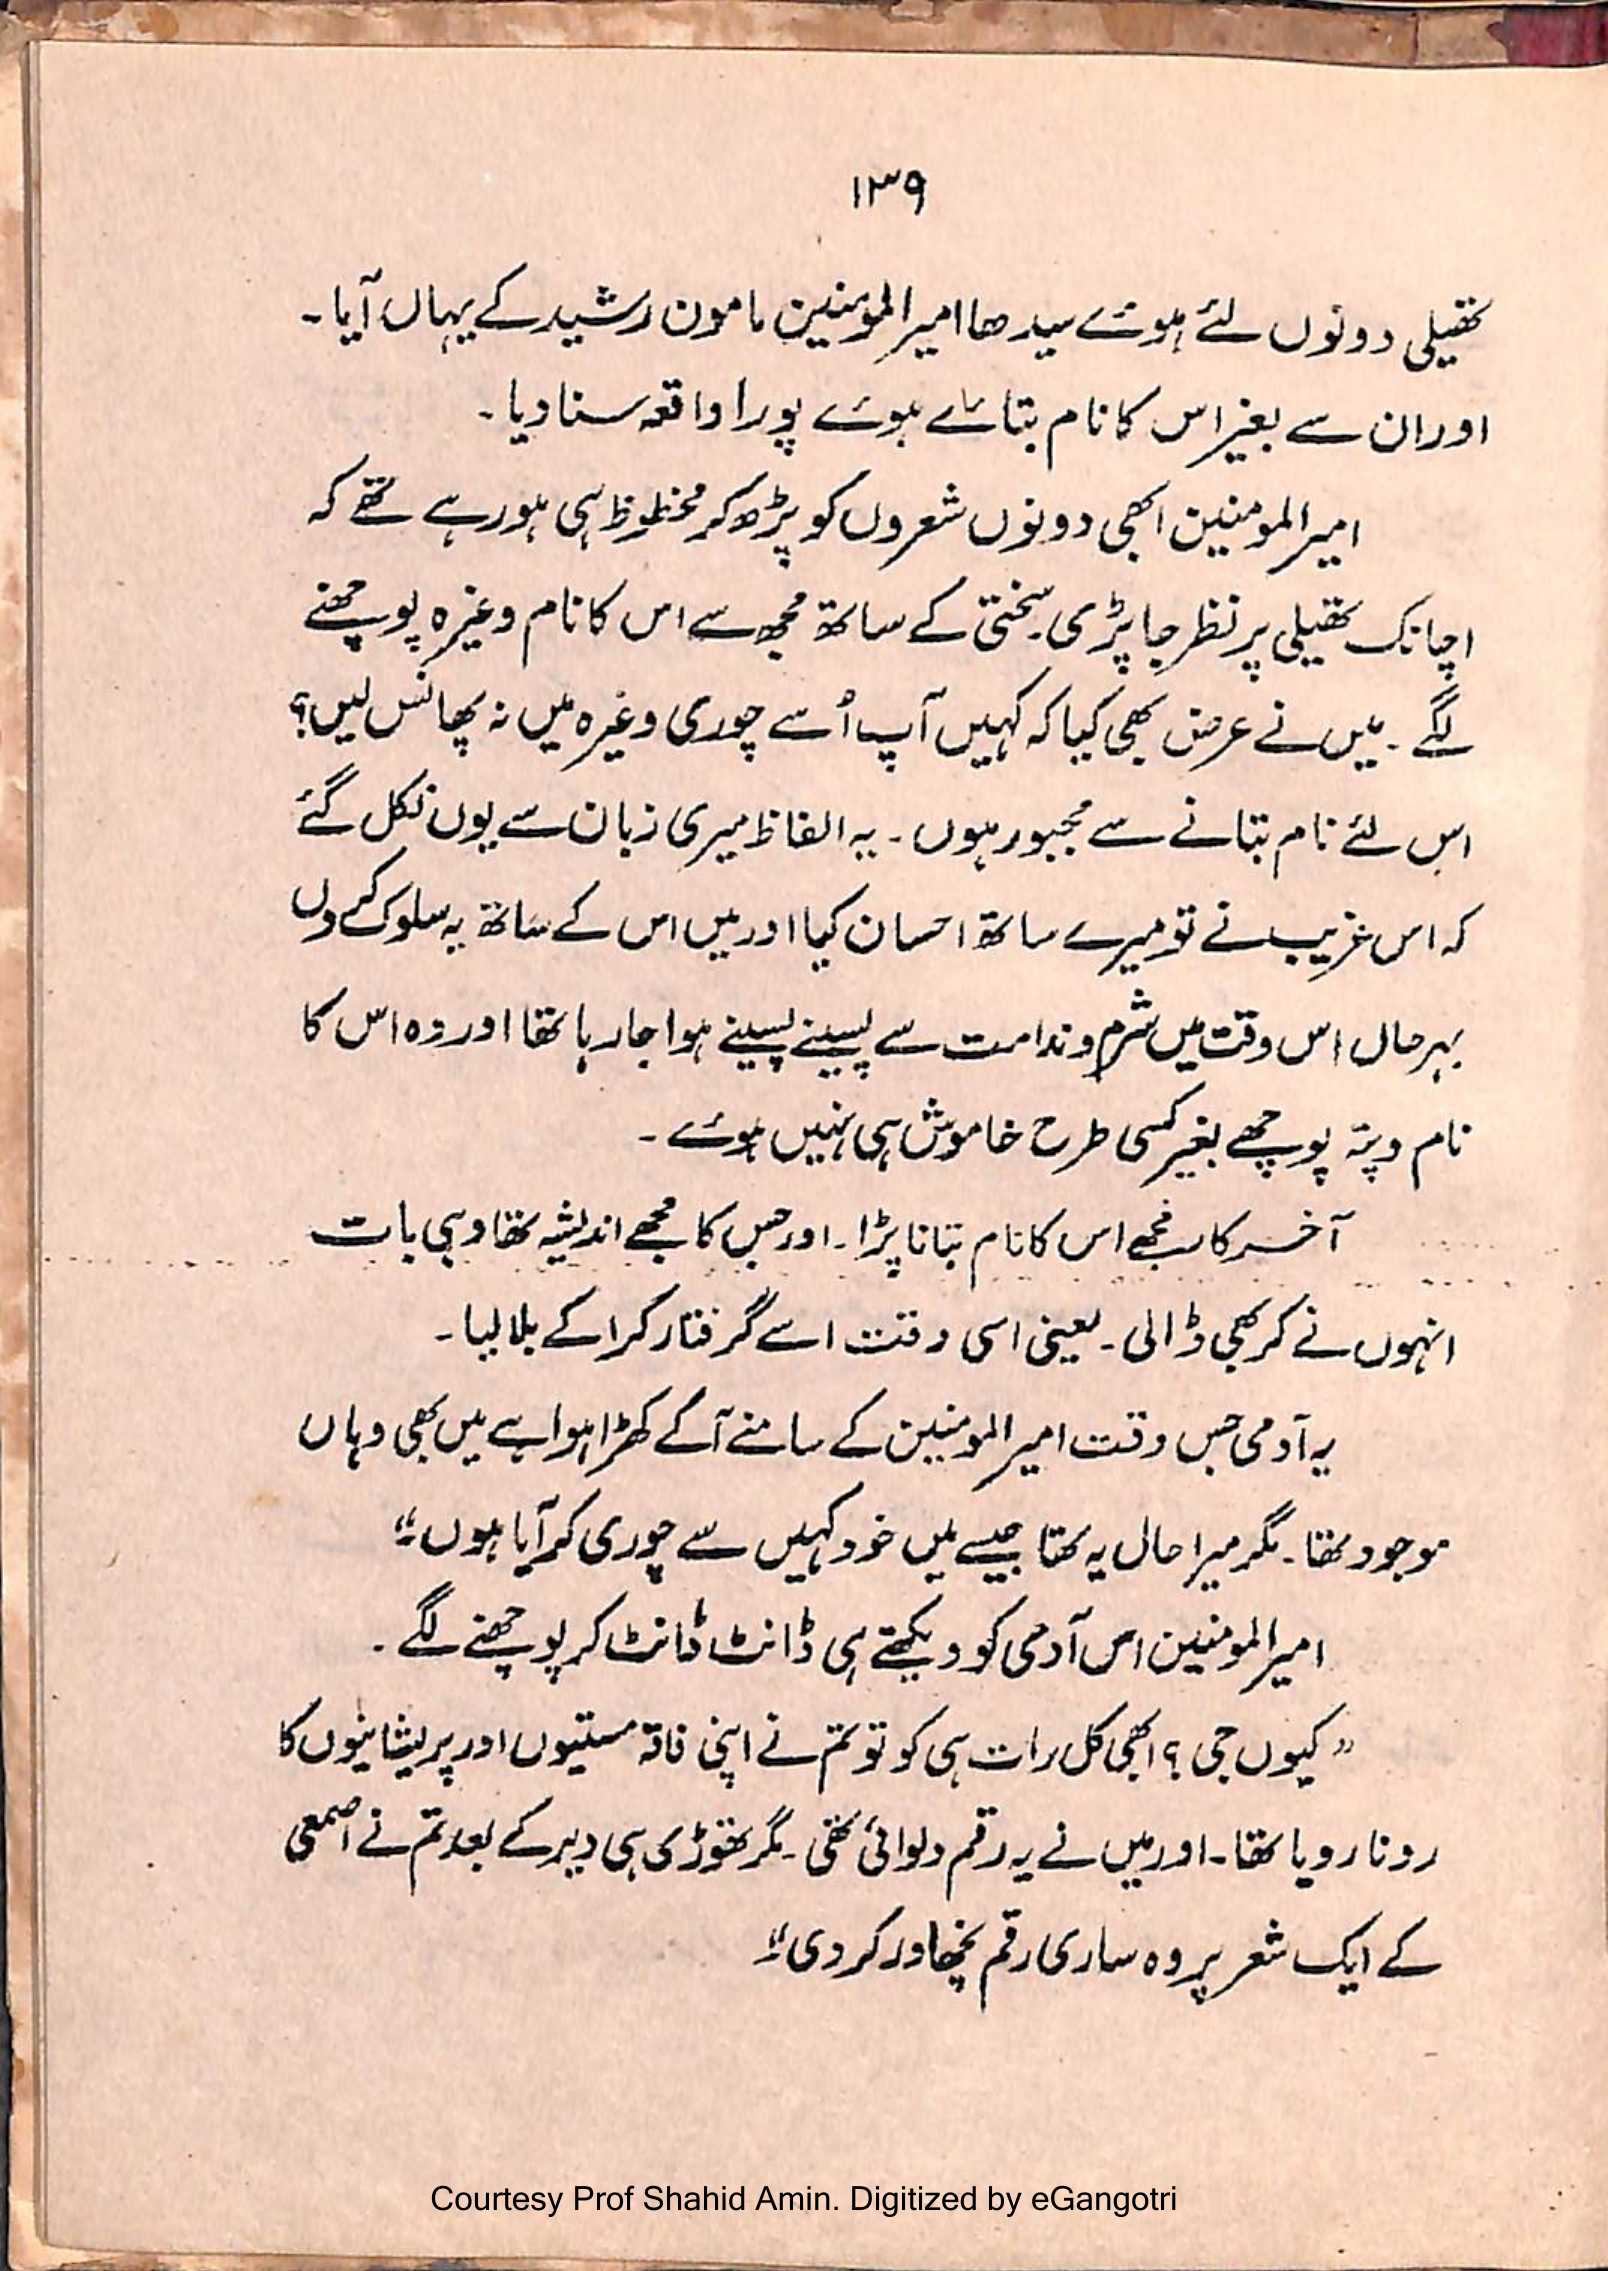 ۱۳۹
تھیلی دونوں لئے ہوئے سیدھا امیر المومنین مامون رشید کے یہاں آیا۔
اور ان سے بغیر اس کا نام بتائے ہوئے پورا واقعہ سنا دیا۔
امیر المومنین ابھی دونوں شعروں کو پڑھ کر محظوظ ہی ہو رہے تھے کہ
اچانک تھیلی پر نظر جا پڑی۔ سختی کے ساتھ مجھ سے اس کا نام وغیرہ پوچھنے
لگے۔ میں نے عرض بھی کیا کہ کہیں آپ اُسے چوری وغیرہ میں نہ پھانس لیں؟
اس لئے نام بتانے سے مجبور ہوں۔ یہ الفاظ میری زبان سے یوں نکل گئے
کہ اس غریب نے تو میرے ساتھ احسان کیا اور میں اس کے ساتھ یہ سلوک کروں
بہرحال اس وقت میں شرم و ندامت سے پسینے پسینے ہوا جا رہا تھا اور وہ اس کا
نام و پتہ پوچھے بغیر کسی طرح خاموش ہی نہیں ہوئے۔
آخر کار مجھے اس کا نام بتانا پڑا۔ اور جس کا مجھے اندیشہ تھا وہی بات
انہوں نے کر بھی ڈالی۔ یعنی اسی وقت اسے گرفتار کرا کے بلا لیا۔
یہ آدمی جس وقت امیر المومنین کے سامنے آکے کھڑا ہوا ہے میں بھی وہاں
موجود تھا۔ مگر میرا حال یہ تھا جیسے میں خود کہیں سے چوری کر آیا ہوں"
امیر المومنین اس آدمی کو دیکھتے ہی ڈانٹ ڈانٹ کر پوچھنے لگے۔
"کیوں جی؟ ابھی کل رات ہی کو تو تم نے اپنی فاقہ مستیوں اور پریشانیوں کا
رونا رویا تھا۔ اور میں نے یہ رقم دلوائی تھی۔ مگر تھوڑی ہی دیر کے بعد تم نے اصمعی
کے ایک شعر پر وہ ساری رقم نچھاور کر دی"
Courtesy Prof Shahid Amin. Digitized by eGangotri